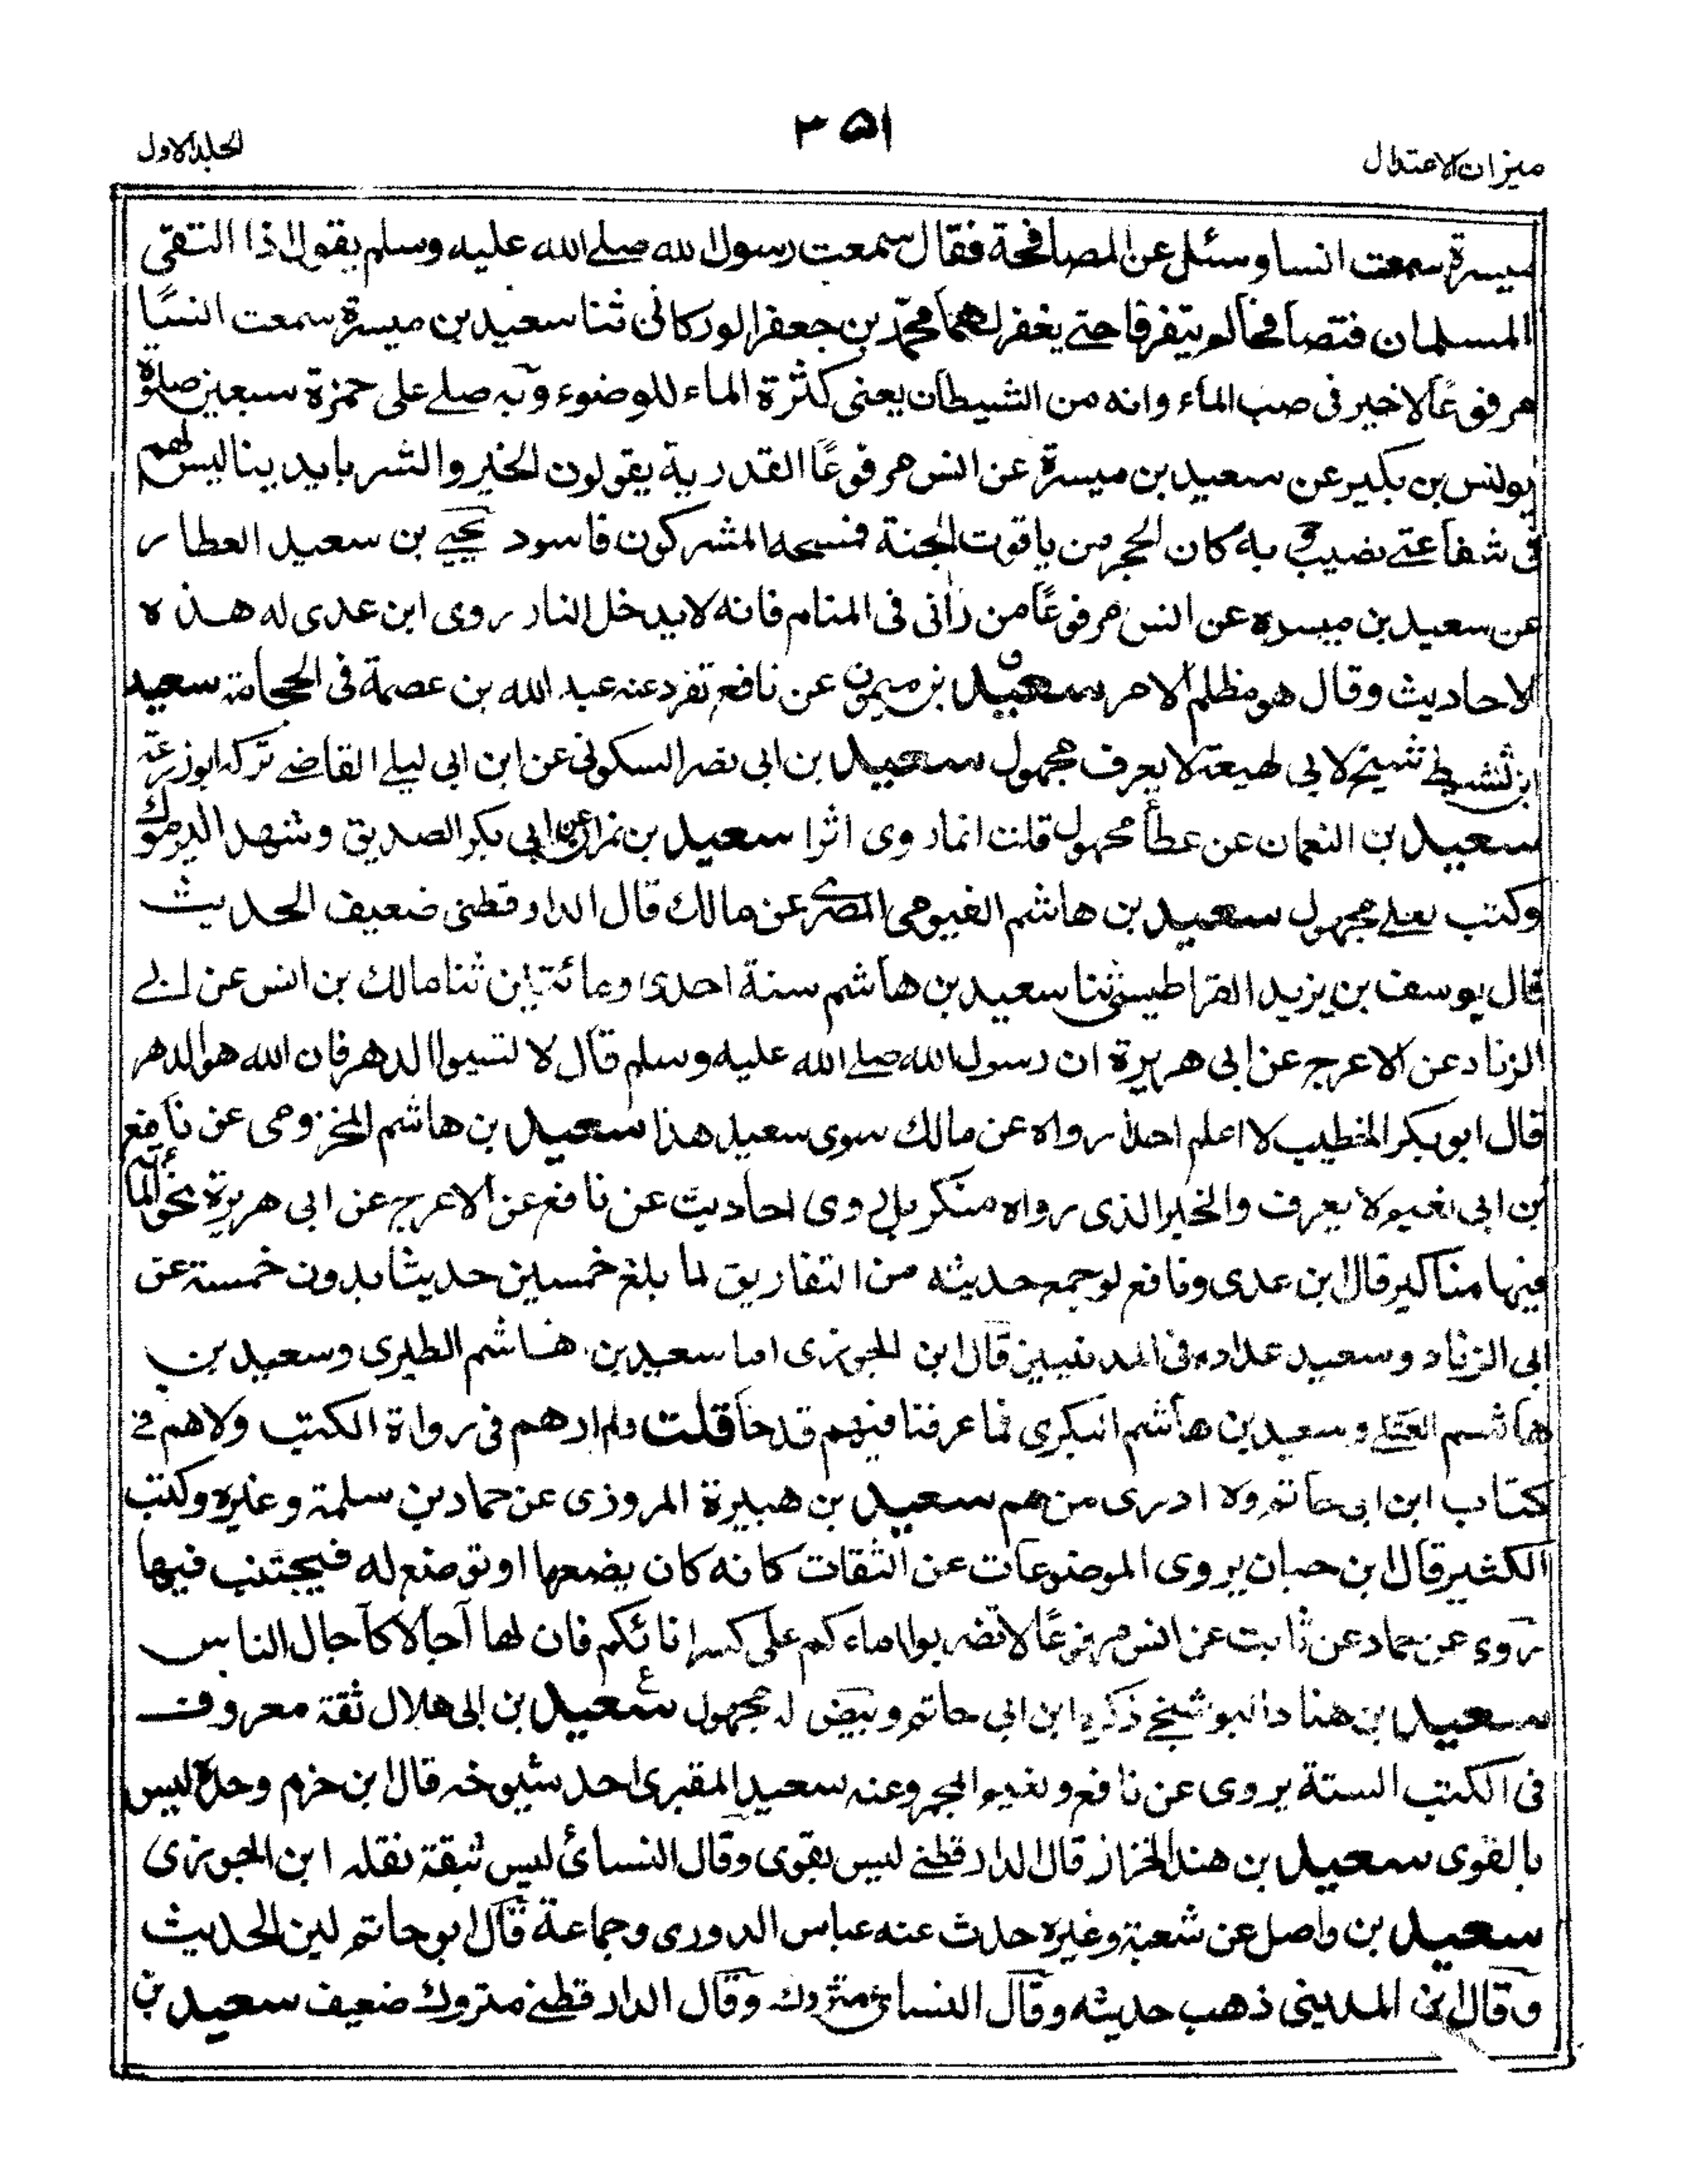 ميزان الاعتدال
٣٥١
الجلد الاول
ميسرة سمعت انسا وسئل عن المصافحة فقال سمعت رسول الله صلے الله عليه وسلم يقول اذا التقى
المسلمان فتصافحا لم يتفرقا حتے يغفر لهما محمد بن جعفر الوركانى ثنا سعيد بن ميسرة سمعت انسًا
مرفوعًا لاخير فى صب الماء وانه من الشيطان يعنى كثرة الماء للوضوء وبه صلے على حمزة سبعين صلوة
يونس بن بكير عن سعيد بن ميسرة عن انس مرفوعًا القدرية يقولون الخير والشر بايدينا ليس لهم
فى شفاعتے نصيب وبه كان الحجر من ياقوت الجنة فمسحه المشركون فاسود يحيے بن سعيد العطار
عن سعيد بن ميسره عن انس مرفوعًا من رأنى فى المنام فانه لا يدخل النار روى ابن عدى له هذه
الاحاديث وقال هو مظلم الامر سعيد بن ميمون ق عن نافع تفرد عنه عبد الله بن عصمة فى الحجامة سعيد
ابن نشيط شيخ لابي لهيعة لا يعرف مجهول سعيد بن ابى نصر السكونى عن ابن ابى ليلے القاضے تركه ابو زرعة
سعيد بن النعمان عن عطأ مجهول قلت انما روى اثرا سعيد بن نمران عن ابى بكر الصديق وشهد اليرموك
وكتب لعلے مجهول سعيد بن هاشم الفيومى المصرى عن مالك قال الدارقطنى ضعيف الحديث
قال يوسف بن يزيد القراطيسى ثنا سعيد بن هاشم سنة احدى ومائتين ثنا مالك بن انس عن ابے
الزناد عن الاعرج عن ابى هريرة ان رسول الله صلے الله عليه وسلم قال لا تسبوا الدهر فان الله هو الدهر
قال ابو بكر الخطيب لا اعلم احدا رواه عن مالك سوى سعيد هذا سعيد بن هاشم المخزومى عن نافع
بن ابى نعيم لا يعرف والخبر الذى رواه منكر بل روى احاديث عن نافع عن الاعرج عن ابى هريرة نحو المأة
فيها مناكير قال ابن عدى ونافع لو جمع حديثه من التفاريق لما بلغ خمسين حديثا بدون خمسة عن
ابى الزناد وسعيد عداده فى المدنيين قال ابن الجوزى اما سعيد بن هاشم الطبرى وسعيد بن
هاشم العتكے وسعيد بن هاشم البكرى فما عرفنا فيهم قدحا قلت ولم ارهم فى رواة الكتب ولاهم فے
كتاب ابن ابى حاتم ولا ادرى من هم سعيد بن هبيرة المروزى عن حماد بن سلمة وغيره وكتب
الكثير قال ابن حبان يروى الموضوعات عن الثقات كانه كان يضعها او توضع له فيجتنب فيها
روى عن حماد عن ثابت عن انس مرفوعًا لا تضربوا اماءكم على كسر انائكم فان لها آجالا كآجال الناس
سعيد بن هناد البوشنجے ذكره ابن ابى حاتم وبيض له مجهول سعيد ع بن ابى هلال ثقة معروف
فى الكتب الستة يروى عن نافع ونعيم المجمر وعنه سعيد المقبرى احد شيوخه قال ابن حزم وحده ليس
بالقوى سعيد بن هند الخزاز قال الدارقطنے ليس بقوى وقال النسائى ليس بثقة نقله ابن الجوزى
سعيد بن واصل عن شعبة وغيره حدث عنه عباس الدورى وجماعة قال ابو حاتم لين الحديث
وقال ابن المدينى ذهب حديثه وقال النسائى متروك وقال الدارقطنے متروك ضعيف سعيد بن